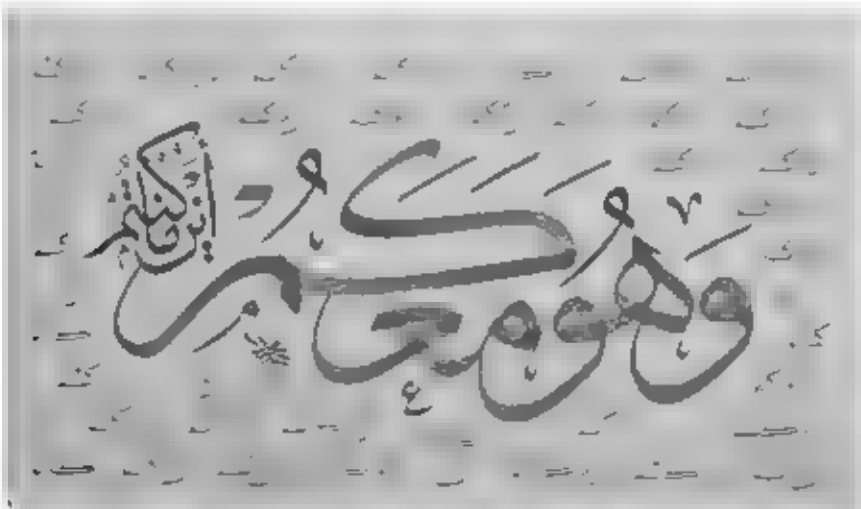 وَهُوَ مَعَكُمْ اين ما كنتم